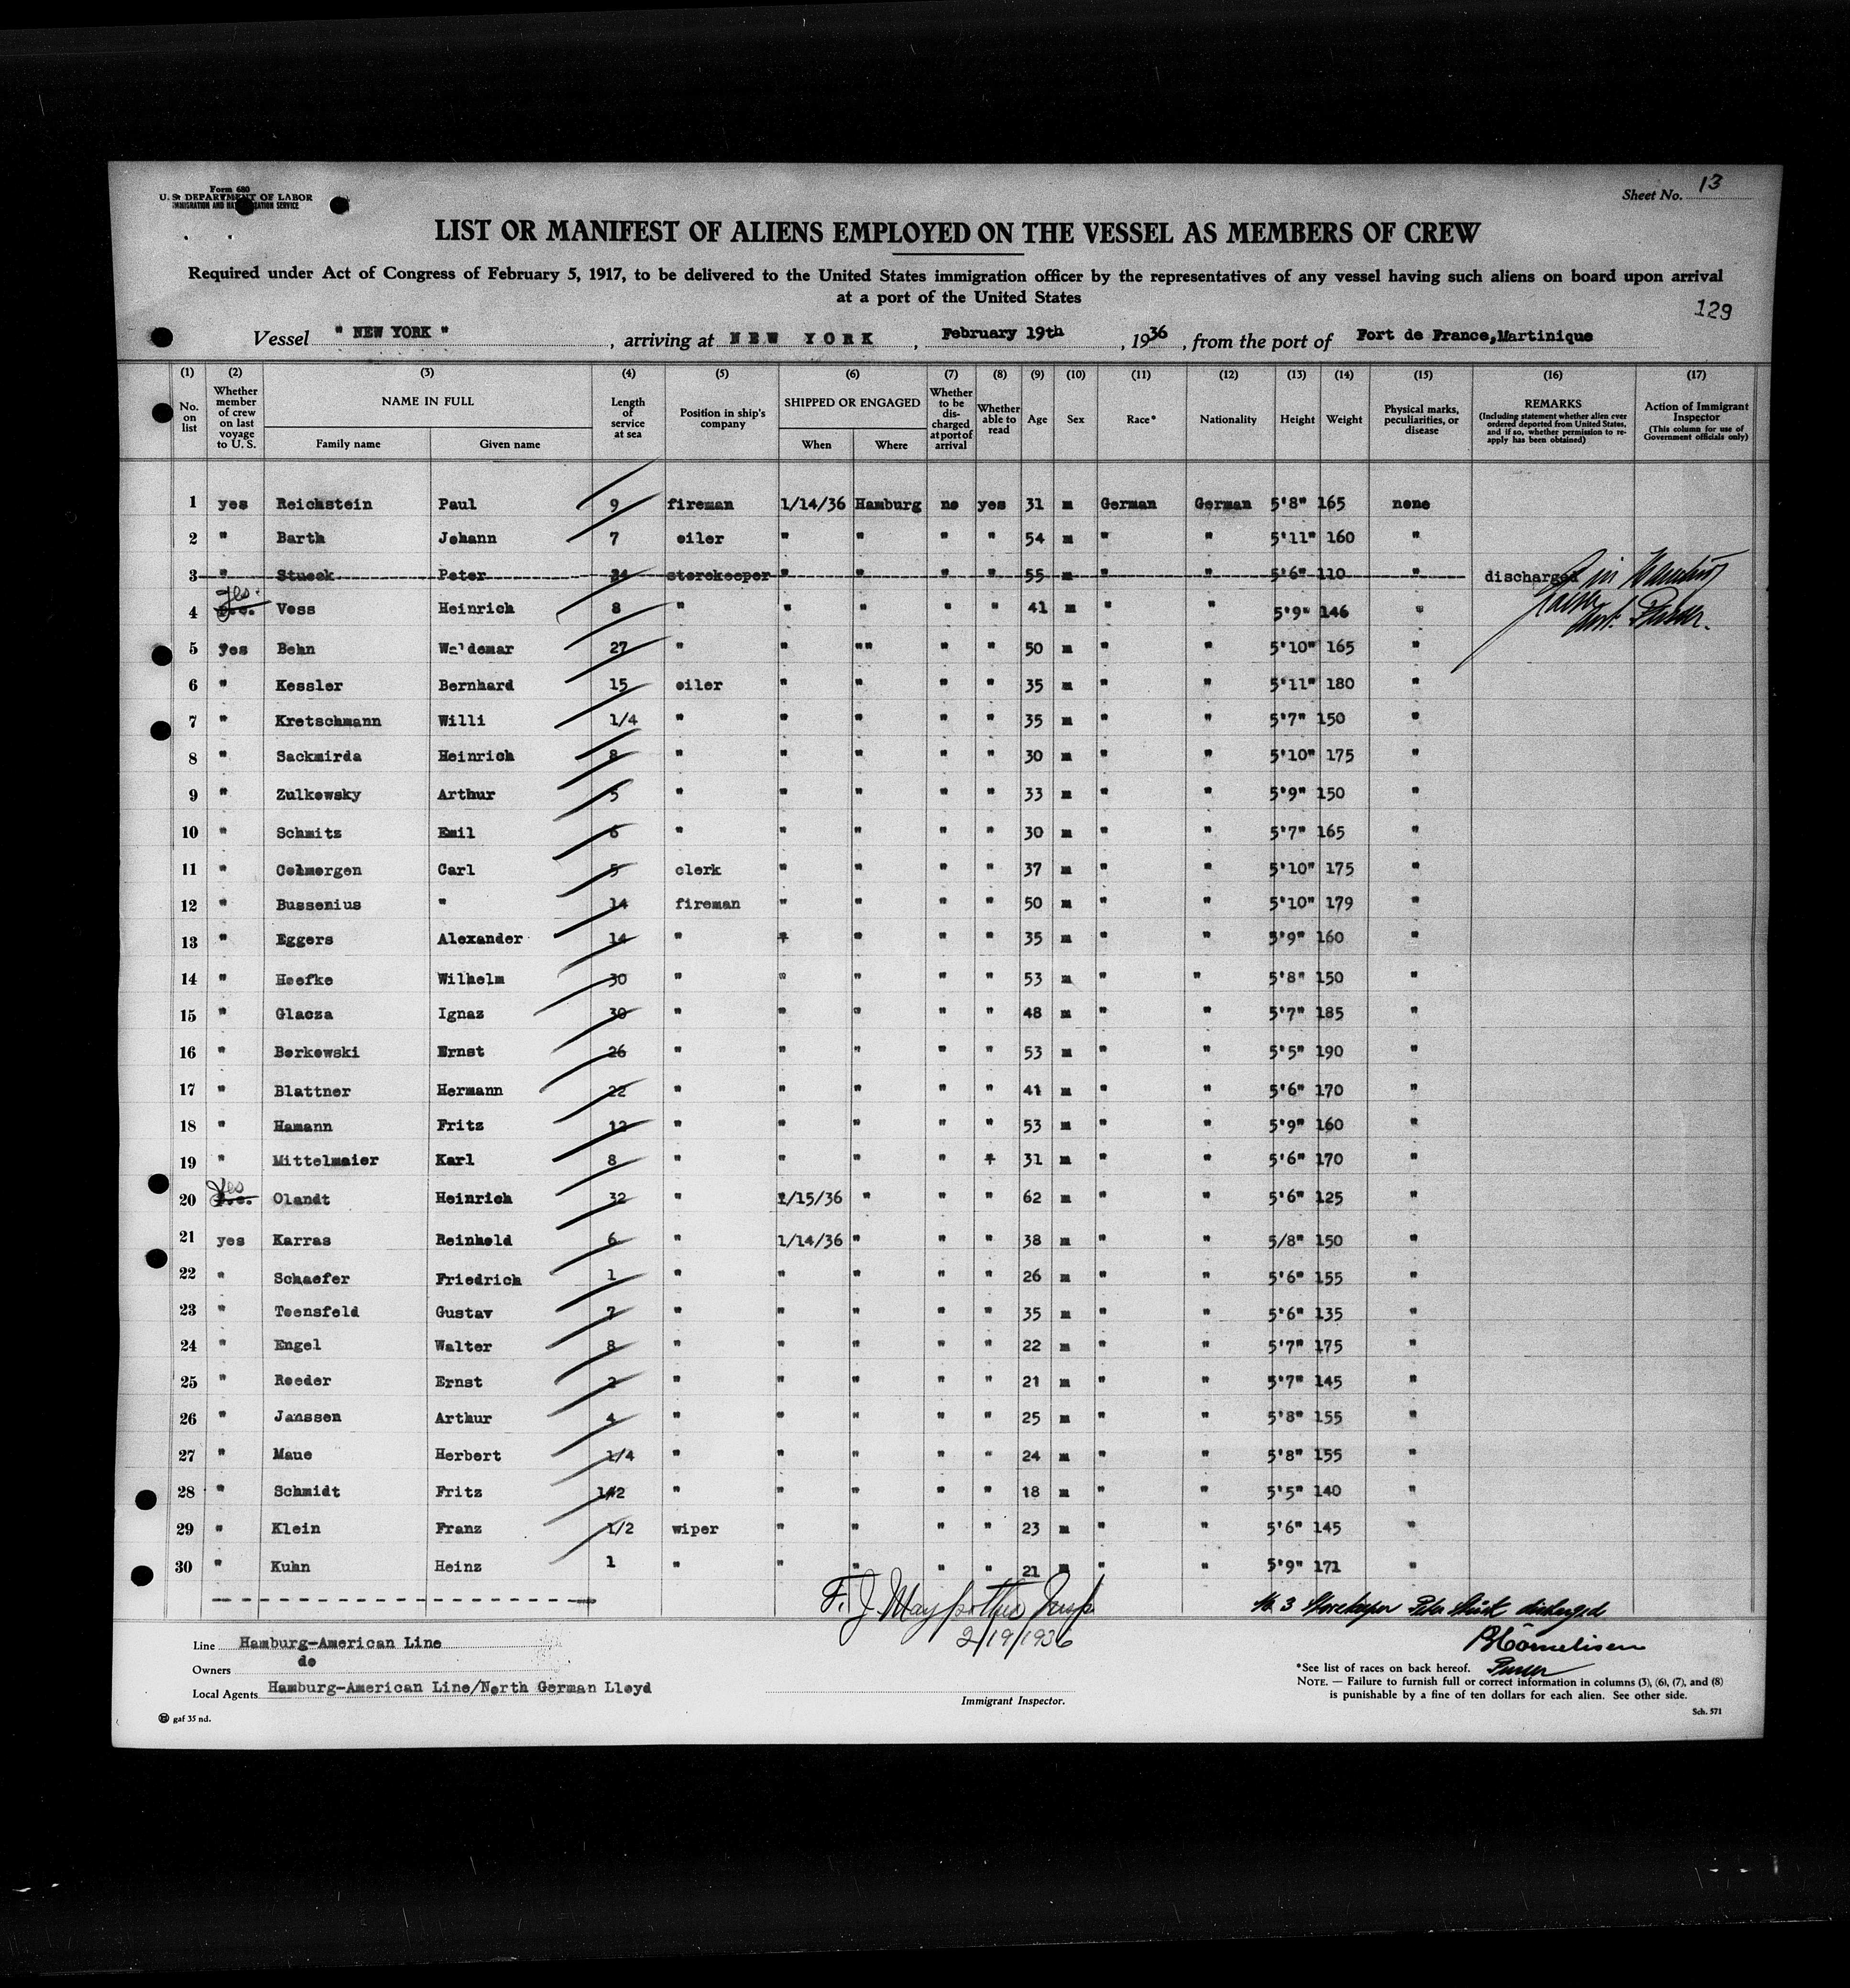 Form 680
U. S. DEPARTMENT OF LABOR
IMMIGRATION AND NATURALIZATION SERVICE
Sheet No. 13
LIST OR MANIFEST OF ALIENS EMPLOYED ON THE VESSEL AS MEMBERS OF CREW
Required under Act of Congress of February 5, 1917, to be delivered to the United States immigration officer by the representatives of any vessel having such aliens on board upon arrival
at a port of the United States
129
Vessel " NEW YORK " , arriving at NEW YORK , February 19th , 1936 , from the port of Fort de France,Martinique
(1) (2) (3) (4) (5) (6) (7) (8) (9) (10) (11) (12) (13) (14) (15) (16) (17)
No. on list
Whether member of crew on last voyage to U. S.
NAME IN FULL
Family name Given name
Length of service at sea
Position in ship's company
SHIPPED OR ENGAGED
When Where
Whether to be discharged at port of arrival
Whether able to read
Age
Sex
Race*
Nationality
Height
Weight
Physical marks, peculiarities, or disease
REMARKS
(Including statement whether alien ever ordered deported from United States, and if so, whether permission to reapply has been obtained)
Action of Immigrant Inspector
(This column for use of Government officials only)
1 yes Reichstein Paul 9 fireman 1/14/36 Hamburg no yes 31 m German German 5'8" 165 none
2 " Barth Johann 7 oiler " " " " 54 m " " 5'11" 160 "
3 " Stueck Peter 34 storekeeper " " " " 55 m " " 5'6" 110 " discharged in Hamburg
4 yes Voss Heinrich 8 " " " " " 41 m " " 5'9" 146 "
5 yes Behn Waldemar 27 " " "" " " 50 m " " 5'10" 165 "
6 " Kessler Bernhard 15 oiler " " " " 35 m " " 5'11" 180 "
7 " Kretschmann Willi 1/4 " " " " " 35 m " " 5'7" 150 "
8 " Sackmirda Heinrich 8 " " " " " 30 m " " 5'10" 175 "
9 " Zulkowsky Arthur 5 " " " " " 33 m " " 5'9" 150 "
10 " Schmitz Emil 6 " " " " " 30 m " " 5'7" 165 "
11 " Colmorgen Carl 5 clerk " " " " 37 m " " 5'10" 175 "
12 " Bussenius " 14 fireman " " " " 50 m " " 5'10" 179 "
13 " Eggers Alexander 14 " " " " " 35 m " " 5'9" 160 "
14 " Hoefke Wilhelm 30 " " " " " 53 m " " 5'8" 150 "
15 " Glacza Ignaz 30 " " " " " 48 m " " 5'7" 185 "
16 " Borkowski Ernst 26 " " " " " 53 m " " 5'5" 190 "
17 " Blattner Hermann 22 " " " " " 41 m " " 5'6" 170 "
18 " Hamann Fritz 12 " " " " " 53 m " " 5'9" 160 "
19 " Mittelmaier Karl 8 " " " " " 31 m " " 5'6" 170 "
20 yes Olandt Heinrich 32 " 1/15/36 " " " 62 m " " 5'6" 125 "
21 yes Karras Reinhold 6 " 1/14/36 " " " 38 m " " 5/8" 150 "
22 " Schaefer Friedrich 1 " " " " " 26 m " " 5'6" 155 "
23 " Toensfeld Gustav 7 " " " " " 35 m " " 5'6" 135 "
24 " Engel Walter 8 " " " " " 22 m " " 5'7" 175 "
25 " Roeder Ernst 2 " " " " " 21 m " " 5'7" 145 "
26 " Janssen Arthur 4 " " " " " 25 m " " 5'8" 155 "
27 " Maue Herbert 1/4 " " " " " 24 m " " 5'8" 155 "
28 " Schmidt Fritz 1/2 " " " " " 18 m " " 5'5" 140 "
29 " Klein Franz 1/2 wiper " " " " 23 m " " 5'6" 145 "
30 " Kuhn Heinz 1 " " " " " 21 m " " 5'9" 171 "
No 3 Storekeeper Peter Stück discharged
2/19/1936
BCornelisen
Purser
Line Hamburg-American Line
Owners do
Local Agents Hamburg-American Line/North German Lloyd
Immigrant Inspector.
*See list of races on back hereof.
NOTE. — Failure to furnish full or correct information in columns (3), (6), (7), and (8)
is punishable by a fine of ten dollars for each alien. See other side.
gaf 35 nd.
Sch. 571